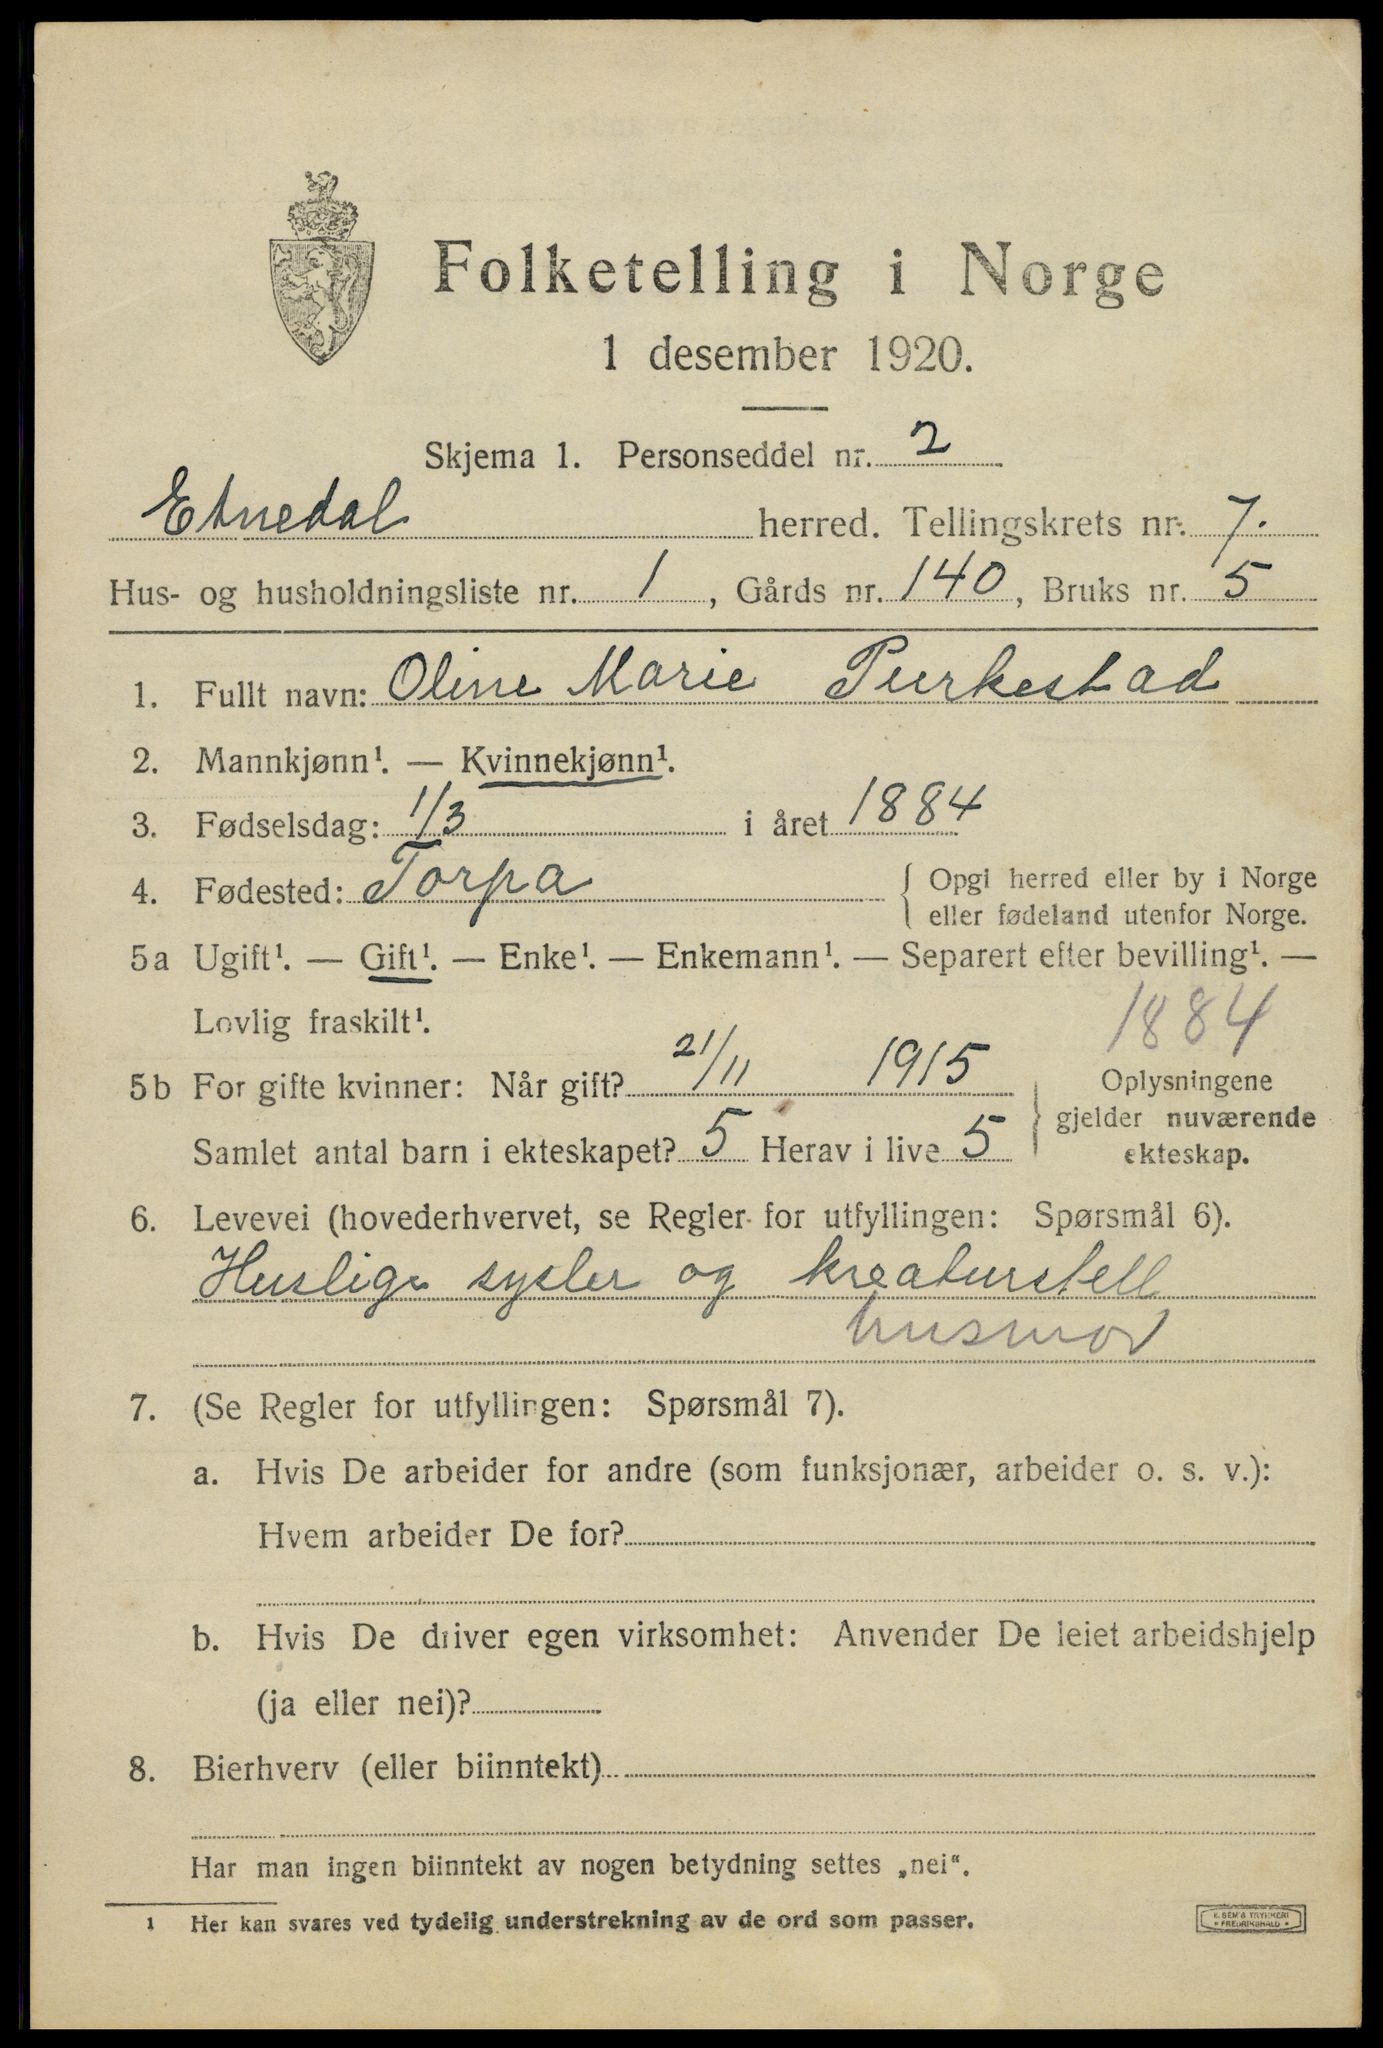 Folketelling i Norge
1 desember 1920.
Skjema 1. Personseddel nr. 2
Etnedal herred. Tellingskrets nr. 7.
Hus- og husholdningsliste nr. 1, Gårds nr. 140, Bruks nr. 5
1. Fullt navn: Oline Marie Purkestad
2. Mannkjønn¹. — Kvinnekjønn¹.
3. Fødselsdag: 1/3 i året 1884
4. Fødested: Torpa { Opgi herred eller by i Norge
eller fødeland utenfor Norge.
5a Ugift¹. — Gift¹. — Enke¹. — Enkemann¹. — Separert efter bevilling¹. —
Lovlig fraskilt¹.
1884
5b For gifte kvinner: Når gift? 21/11 1915
Samlet antal barn i ekteskapet? 5 Herav i live 5
} Oplysningene
gjelder nuværende
ekteskap.
6. Levevei (hovederhvervet, se Regler for utfyllingen: Spørsmål 6).
Huslige sysler og kreaturstell
husmor
7. (Se Regler for utfyllingen: Spørsmål 7).
a. Hvis De arbeider for andre (som funksjonær, arbeider o. s. v.):
Hvem arbeider De for?
b. Hvis De driver egen virksomhet: Anvender De leiet arbeidshjelp
(ja eller nei)?
8. Bierhverv (eller biinntekt)
Har man ingen biinntekt av nogen betydning settes „nei“.
1 Her kan svares ved tydelig understrekning av de ord som passer.
E. SEM'S TRYKKERI
• FREDRIKSHALD •